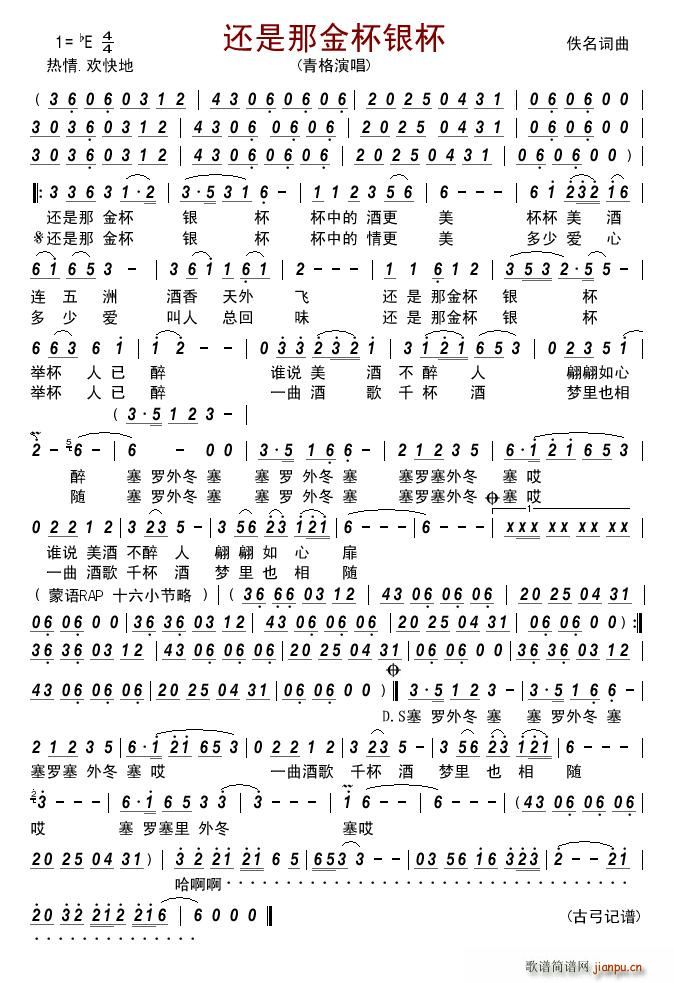 还是那金杯银杯
1= ♭E 4/4
佚名词曲
热情.欢快地
(青格演唱)
( 3 6 0 6 0 3 1 2 | 4 3 0 6 0 6 0 6 | 2 0 2 5 0 4 3 1 | 0 6 0 6 0 0
3 0 3 6 0 3 1 2 | 4 3 0 6 0 6 0 6 | 2 0 2 5 0 4 3 1 | 0 6 0 6 0 0
3 0 3 6 0 3 1 2 | 4 3 0 6 0 6 0 6 | 2 0 2 5 0 4 3 1 | 0 6 0 6 0 0 )
‖: 3 3 6 3 1·2 | 3·5 3 1 6 - | 1 1 2 3 5 6 | 6 - - - | 6 1 2 3 2 1 6
还是那 金杯 银 杯 杯中的 酒更 美 杯杯 美 酒
𝄋还是那 金杯 银 杯 杯中的 情更 美 多少 爱 心
6 1 6 5 3 - | 3 6 1 1 6 1 | 2 - - - | 1 1 6 1 2 | 3 5 3 2·5 -
连 五 洲 酒香 天外 飞 还 是 那金杯 银 杯
多 少 爱 叫人 总回 味 还 是 那金杯 银 杯
6 6 3 6 1 | 1 2 - - | 0 3 3 2 3 2 1 | 3 1 2 1 6 5 3 | 0 2 3 5 1
举杯 人 已 醉 谁说 美 酒 不 醉 人 翩翩如心
举杯 人 已 醉 一曲 酒 歌 千 杯 酒 梦里也相
( 3·5 1 2 3 - |
2 - 6 - | 6 - 0 0 | 3·5 1 6 6 | 2 1 2 3 5 | 6·1 2 1 6 5 3
醉 塞 罗外冬 塞 塞 罗 外冬 塞 塞罗塞外冬 塞 哎
随 塞 罗外冬 塞 塞 罗 外冬 塞 塞罗塞外冬 塞 哎
0 2 2 1 2 | 3 2 3 5 - | 3 5 6 2 3 1 2 1 | 6 - - - | 6 - - - | 1 x x x x x x x x x
谁说 美酒 不醉 人 翩翩 如 心 扉
一曲 酒歌 千杯 酒 梦 里 也 相 随
( 蒙语RAP 十六小节略 ) | ( 3 6 6 6 0 3 1 2 | 4 3 0 6 0 6 0 6 | 2 0 2 5 0 4 3 1 |
0 6 0 6 0 0 | 3 6 3 6 0 3 1 2 | 4 3 0 6 0 6 0 6 | 2 0 2 5 0 4 3 1 | 0 6 0 6 0 0 ) :‖
3 6 3 6 0 3 1 2 | 4 3 0 6 0 6 0 6 | 2 0 2 5 0 4 3 1 | 0 6 0 6 0 0 | 3 6 3 6 0 3 1 2 |
4 3 0 6 0 6 0 6 | 2 0 2 5 0 4 3 1 | 0 6 0 6 0 0 ) ‖ 3·5 1 2 3 - | 3·5 1 6 6 -
D.S塞 罗外冬 塞 塞 罗外冬 塞
2 1 2 3 5 | 6·1 2 1 6 5 3 | 0 2 2 1 2 | 3 2 3 5 - | 3 5 6 2 3 1 2 1 | 6 - - -
塞罗塞 外冬 塞 哎 一曲酒歌 千杯 酒 梦里 也 相 随
3 - - - | 6·1 6 5 3 3 | 3 - - - | 1 6 - - | 6 - - - | ( 4 3 0 6 0 6 0 6
哎 塞 罗塞里 外冬 塞哎
2 0 2 5 0 4 3 1 | 0 6 0 6 0 0 ) | 3 2 2 1 2 1 6 5 | 6 5 3 3 - - | 0 3 5 6 1 6 3 2 3 | 2 - - 2 1
哈啊啊
2 0 3 2 2 1 2 2 1 2 1 6 | 6 0 0 0 ‖
(古弓记谱)
歌谱简谱网
jianpu.cn